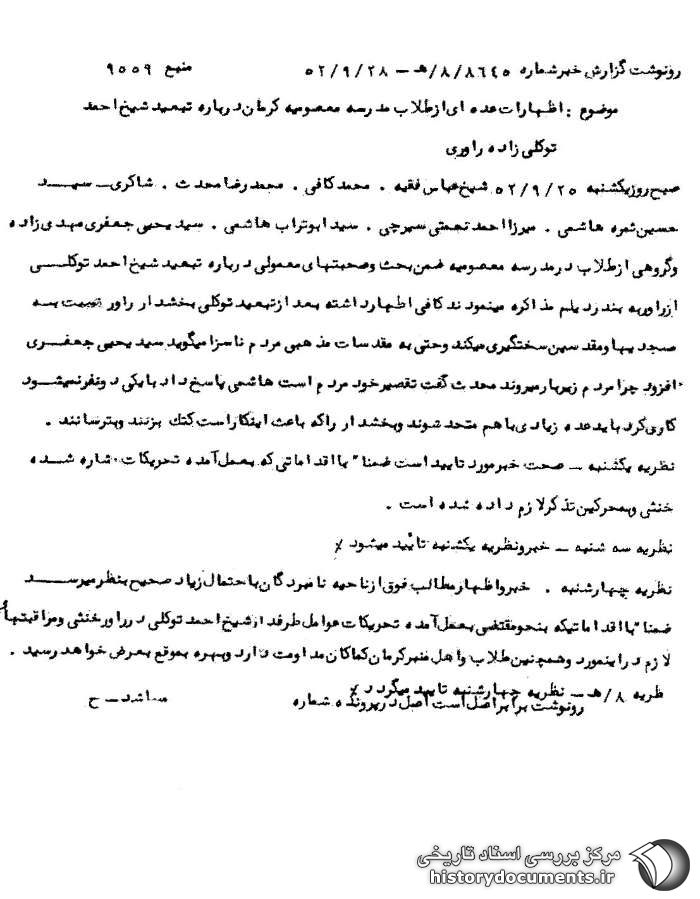 رونوشت گزارش خبر شماره ۸۶۴۵/۸/هـ – ۵۲/۹/۲۸ منبع ۹۵۵۹
موضوع : اظهارات عده ای از طلاب مدرسه معصومیه کرمان درباره تبعید شیخ احمد
توکلی زاده راوری
صبح روز یکشنبه ۵۲/۹/۲۵ شیخ عباس فقیه . محمد کافی . محمد رضا محدث . شاکری – سید
حسین ثمره هاشمی . میرزا احمد نعمتی سیرچی . سید ابوتراب هاشمی . سید یحیی جعفری مهدی زاده
وگروهی از طلاب در مدرسه معصومیه ضمن بحث وصحبتهای معمولی درباره تبعید شیخ احمد توکلی
از راور به بندر دیلم مذاکره مینمودند کافی اظهار داشته بعد از تبعید توکلی بخشدار راور نسبت به
مسجدیها ومقدسین سختگیری میکند وحتی به مقدسات مذهبی مردم ناسزا میگوید سید یحیی جعفری
افزود چرا مردم زیر بار میروند محدث گفت تقصیر خود مردم است هاشمی پاسخ داد با یکی دونفر نمیشود
کاری کرد باید عده زیادی با هم متحد شوند وبخشدار راکه باعث اینکار است کتک بزنند وبترسانند .
نظریه یکشنبه – صحت خبر مورد تایید است ضمنا" با اقداماتی که بعمل آمده تحریکات اشاره شده
خنثی وبمحرکین تذکر لازم داده شده است .
نظریه سه شنبه – خبر ونظریه یکشنبه تأیید میشود ٪
نظریه چهارشنبه . خبر واظهار مطالب فوق از ناحیه نامبردگان باحتمال زیاد صحیح بنظر میرسد
ضمنا" با اقداماتیکه بنحو مقتضی بعمل آمده تحریکات عوامل طرفدار شیخ احمد توکلی در راور خنثی ومراقبتهای
لازم در اینمورد وهمچنین طلاب واهل منبر کرمان کماکان مداومت دارد وبهره بموقع بعرض خواهد رسید .
ظریه ۸/هـ – نظریه چهارشنبه تایید میگردد ٪
رونوشت برابر اصل است اصل در پرونده شماره میباشد – ح
مرکز بررسی اسناد تاریخی
historydocuments.ir